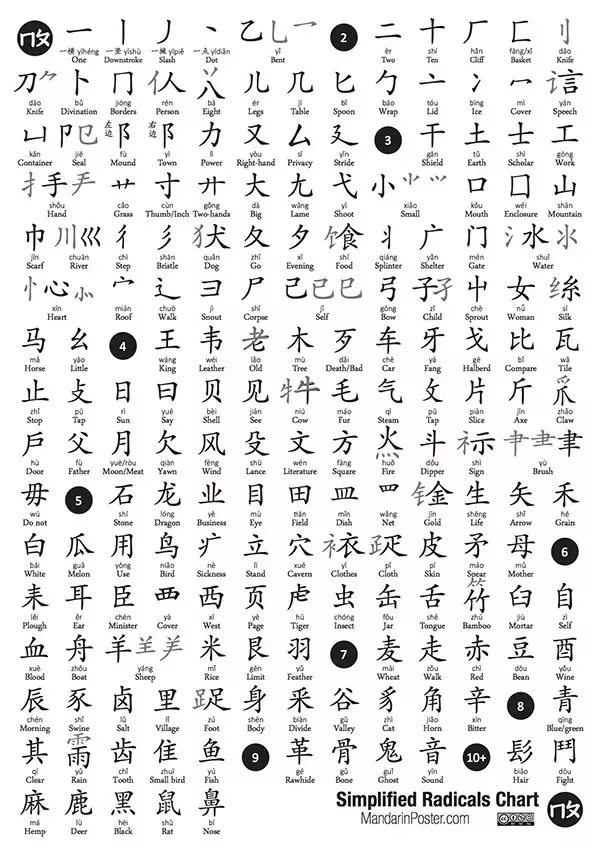 一 丨 丿 丶 乙乚乛 2 二 十 厂 匚 刂
一横 yīhéng 一竖 yīshù 一撇 yīpiě 一点 yīdiǎn yǐ èr shí hǎn fāng/xǐ dāo
One Downstroke Slash Dot Bent Two Ten Cliff Basket Knife
刀⺈ 卜 冂 亻人 八丷 儿 几 匕 勹 亠 冫 冖 讠言
dāo bǔ jiōng rén bā ér jī bǐ bāo tóu bīng mì yán
Knife Divination Borders Person Eight Legs Table Spoon Wrap Lid Ice Cover Speech
凵 卩㔾 左边 阝 右边 阝 力 又 厶 廴 3 干 土 士 工
kǎn jié fù yì lì yòu sī yǐn gān tǔ shì gōng
Container Seal Mound Town Power Right-hand Privacy Stride Shield Earth Scholar Work
扌手龵 艹 寸 廾 大 尢 弋 小⺌⺍ 口 囗 山
shǒu cǎo cùn gǒng dà wāng yì xiǎo kǒu wéi shān
Hand Grass Thumb/Inch Two-hands Big Lame Shoot Small Mouth Enclosure Mountain
巾 川巛 彳 彡 犭犬 夂 夕 饣食 丬 广 门 氵水氺
jīn chuān chì shān quǎn zhǐ xī shí qiáng yǎn mén shuǐ
Scarf River Step Bristle Dog Go Evening Food Splinter Shelter Gate Water
忄心⺗ 宀 辶 彐 尸 己已巳 弓 子孑 屮 女 纟糸
xīn mián chuò jì shī jǐ gōng zǐ chè nǚ sī
Heart Roof Walk Snout Corpse Self Bow Child Sprout Woman Silk
马 幺 4 王 韦 老 木 歹 车 牙 戈 比 瓦
mǎ yāo wáng wéi lǎo mù dǎi chē yá gē bǐ wǎ
Horse Little King Leather Old Tree Death/Bad Car Fang Halberd Compare Tile
止 攴 日 曰 贝 见 牜牛 毛 气 攵 片 斤 爪爫
zhǐ pū rì yuē bèi jiàn niú máo qì pū piàn jīn zhǎo
Stop Tap Sun Say Shell See Cow Fur Steam Tap Slice Axe Claw
户 父 月 欠 风 殳 文 方 火灬 斗 礻示 肀⺻聿
hù fù yuè/ròu qiàn fēng shū wén fāng huǒ dǒu shì yù
Door Father Moon/Meat Yawn Wind Lance Literature Square Fire Dipper Sign Brush
毋 5 石 龙 业 目 田 皿 罒 钅金 生 矢 禾
wú shí lóng yè mù tián mǐn wǎng jīn shēng shǐ hé
Do not Stone Dragon Business Eye Field Dish Net Gold Life Arrow Grain
白 瓜 用 鸟 疒 立 穴 衤衣 疋 皮 矛 母 6
bái guā yòng niǎo nè lì xué yī pǐ pí máo mǔ
White Melon Use Bird Sickness Stand Cavern Clothes Cloth Skin Spear Mother
耒 耳 臣 覀 西 页 虍 虫 缶 舌 竹 臼 自
lěi ěr chén yà xī yè hū chóng fǒu shé zhú jiù zì
Plough Ear Minister Cover West Page Tiger Insect Jar Tongue Bamboo Mortar Self
血 舟 羊⺷⺶ 米 艮 羽 7 麦 走 赤 豆 酉
xuè zhōu yáng mǐ gèn yǔ mài zǒu chì dòu yǒu
Blood Boat Sheep Rice Limit Feather Wheat Walk Red Bean Wine
辰 豕 卤 里 足 身 釆 谷 豸 角 辛 8 青
chén shǐ lǔ lǐ zú shēn biàn gǔ zhì jiǎo xīn qīng
Morning Swine Salt Village Foot Body Divide Valley Cat Horn Bitter Blue/green
其 雨 齿 隹 鱼 9 革 骨 鬼 音 10+ 髟 鬥
qí yǔ chǐ zhuī yú gé gǔ guǐ yīn biāo dòu
Clear Rain Tooth Small bird Fish Rawhide Bone Ghost Sound Hair Fight
麻 鹿 黑 鼠 鼻
má lù hēi shǔ bí
Hemp Deer Black Rat Nose
Simplified Radicals Chart
MandarinPoster.com